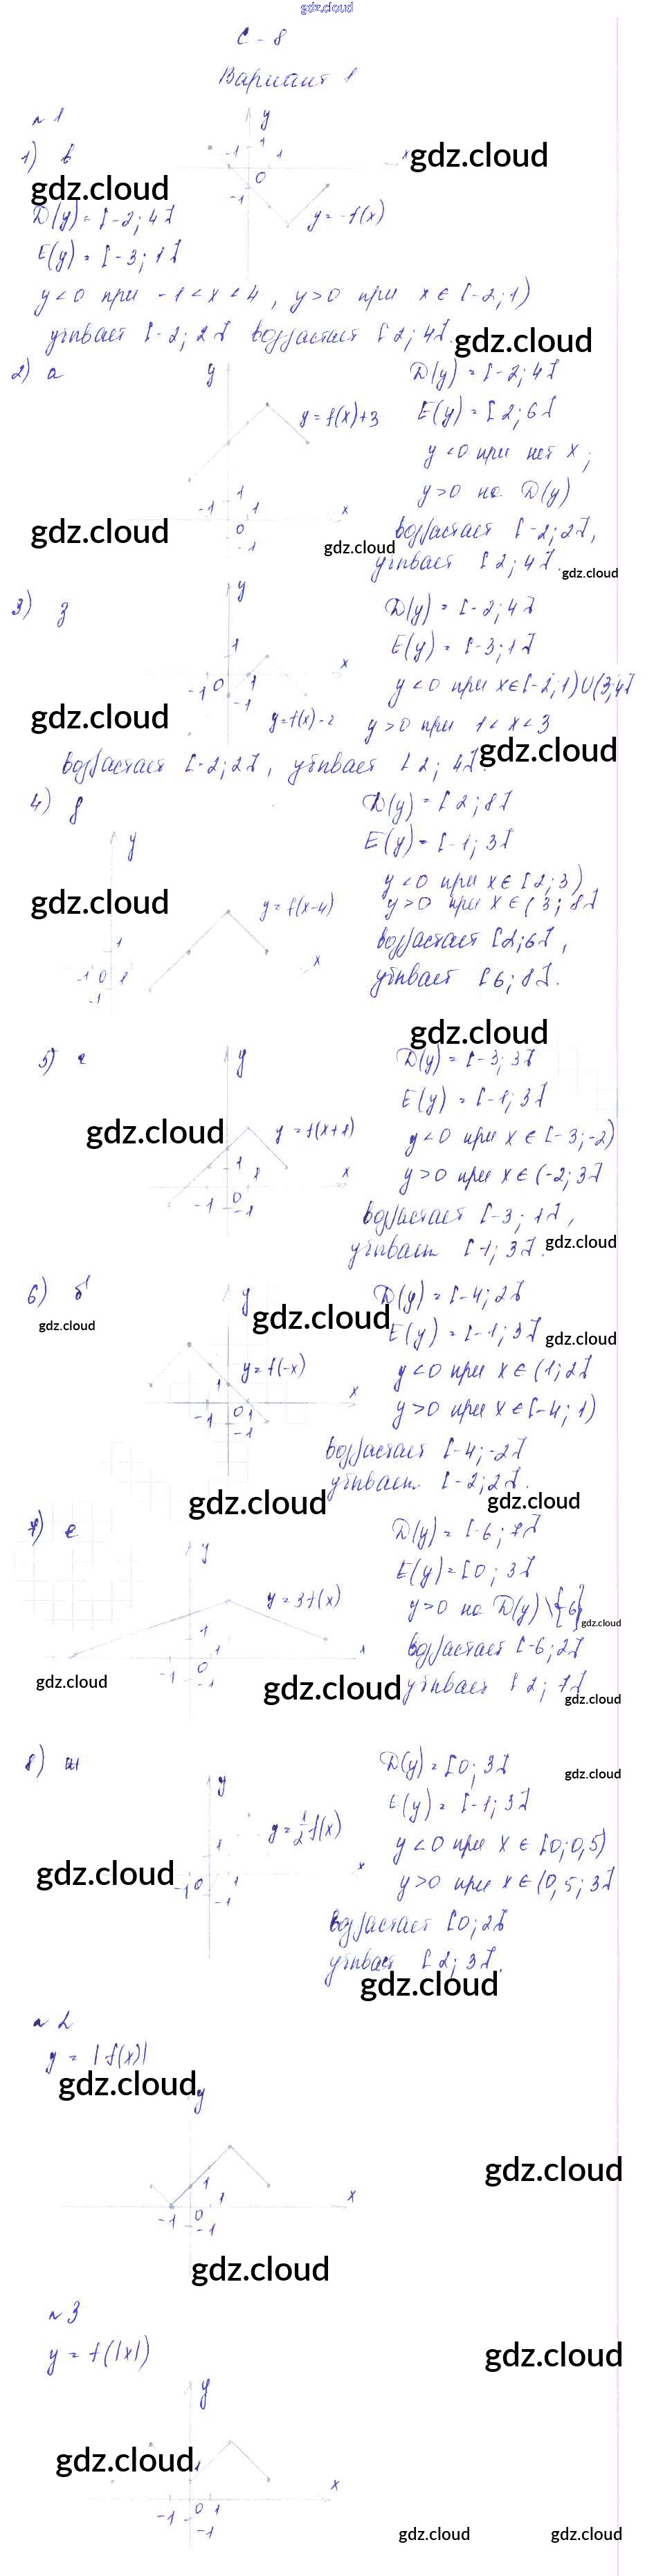 gdz.cloud
С - 8
Вариант 1
№1
1) в
y
-1 1 1 x
0
-1
gdz.cloud
gdz.cloud
y = -f(x)
D(y) = [-2; 4]
E(y) = [-3; 1]
y < 0 при -1 < x < 4, y > 0 при x ∈ [-2; 1)
убывает [-2; 2] возрастает [2; 4].
gdz.cloud
2) а
y
y = f(x)+3
1
-1 1 x
0
-1
D(y) = [-2; 4]
E(y) = [2; 6]
y < 0 при нет x;
y > 0 на D(y)
возрастает [-2; 2],
убывает [2; 4].
gdz.cloud
gdz.cloud
gdz.cloud
3) з
y
1
x
-1 0 1
-1
y = f(x) - 2
D(y) = [-2; 4]
E(y) = [-3; 1]
y < 0 при x ∈ [-2; 1) ∪ (3; 4]
y > 0 при 1 < x < 3
gdz.cloud
gdz.cloud
возрастает [-2; 2], убывает [2; 4].
4) д
y
y = f(x-4)
1
x
-1 0 1
-1
D(y) = [2; 8]
E(y) = [-1; 3]
y < 0 при x ∈ [2; 3)
y > 0 при x ∈ (3; 8]
возрастает [2; 6],
убывает [6; 8].
gdz.cloud
gdz.cloud
5) г
y
y = f(x+1)
1
1 x
-1 0
-1
D(y) = [-3; 3]
E(y) = [-1; 3]
y < 0 при x ∈ [-3; -2)
y > 0 при x ∈ (-2; 3]
возрастает [-3; 1],
убывает [-1; 3].
gdz.cloud
gdz.cloud
6) б
y
y = f(-x)
1
x
-1 0 1
-1
D(y) = [-4; 2]
E(y) = [-1; 3]
y < 0 при x ∈ (1; 2]
y > 0 при x ∈ [-4; 1)
возрастает [-4; -2]
убывает [-2; 2].
gdz.cloud
gdz.cloud
gdz.cloud
gdz.cloud
gdz.cloud
7) е
y
y = 3f(x)
1
1
-1 0
-1
D(y) = [-6; 7]
E(y) = [0; 3]
y > 0 на D(y) \ {6}
возрастает [-6; 2]
убывает [2; 7]
gdz.cloud
gdz.cloud
gdz.cloud
gdz.cloud
8) ж
y
y = 1/2 f(x)
1
x
-1 0 1
-1
D(y) = [0; 3]
E(y) = [-1; 3]
y < 0 при x ∈ [0; 0,5)
y > 0 при x ∈ (0,5; 3]
возрастает [0; 2]
убывает [2; 3].
gdz.cloud
gdz.cloud
gdz.cloud
№2
y = |f(x)|
gdz.cloud
y
1
1 x
-1 0
-1
gdz.cloud
gdz.cloud
№3
y = f(|x|)
gdz.cloud
y
gdz.cloud
1
x
-1 0 1
-1
gdz.cloud
gdz.cloud